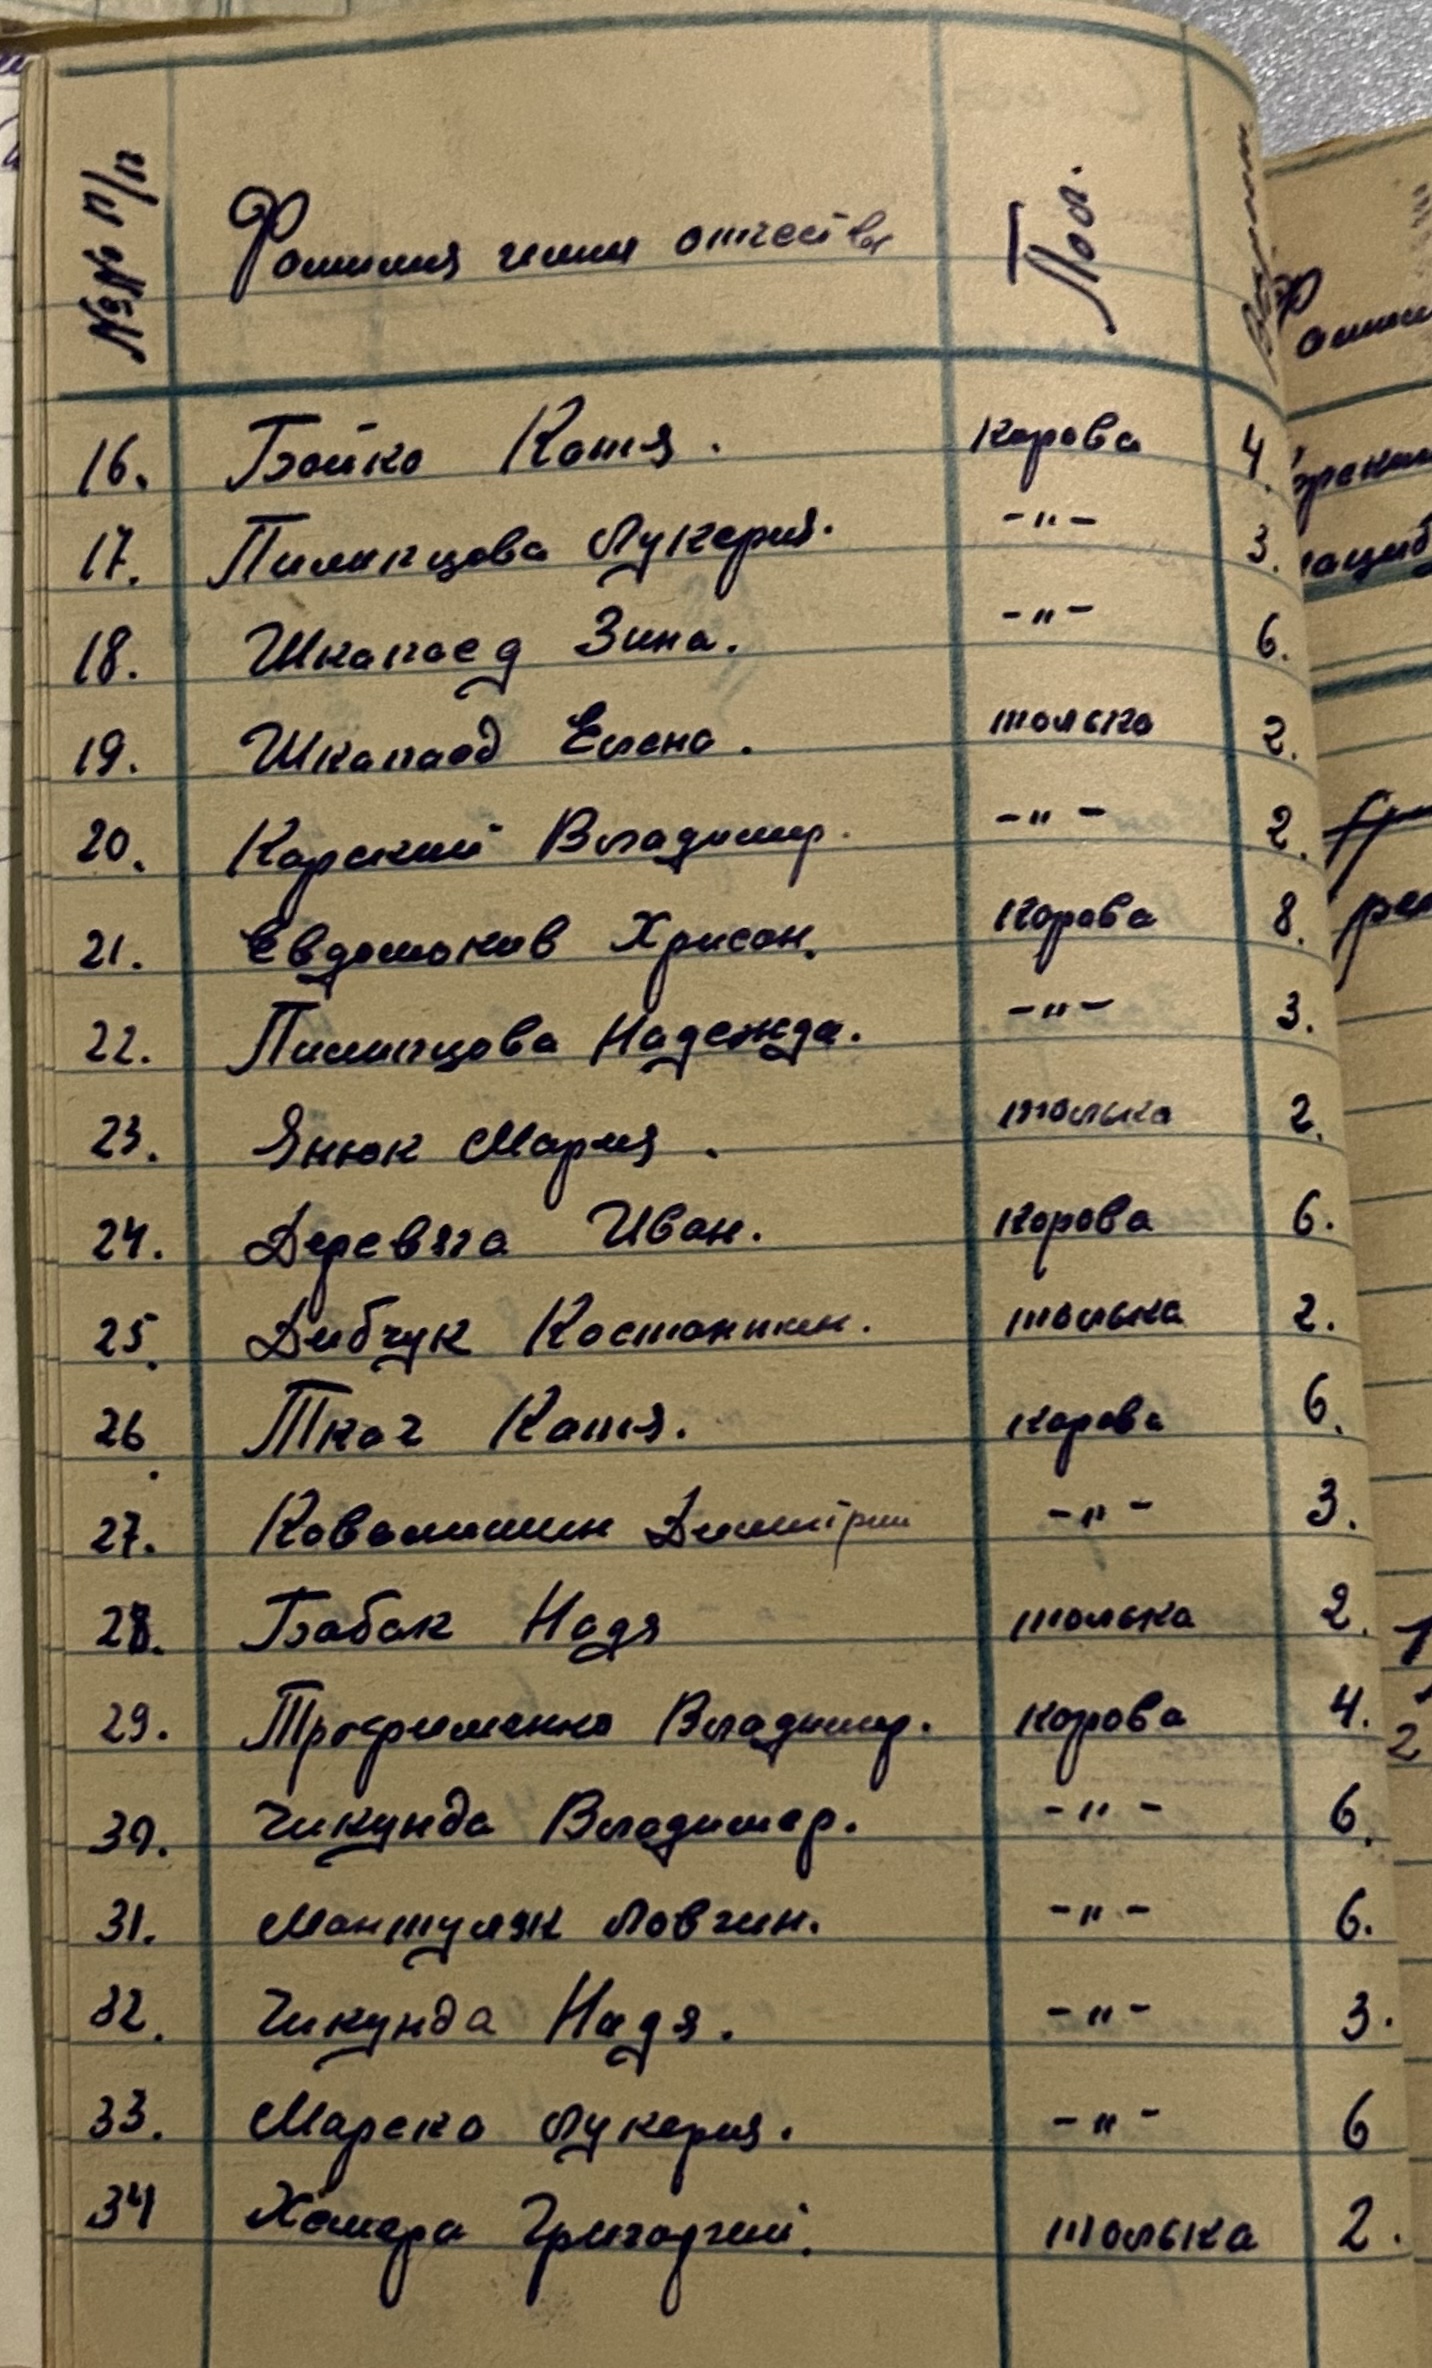 №№ п/п Фамилия имия отчества Пол.
16. Бойко Катя. Корова 4.
17. Пилипцова Лукерия. -"- 3.
18. Шкапоед Зина. -"- 6.
19. Шкапаед Елена. толька 2.
20. Карский Владимир. -"- 2.
21. Евдомоков Хрисон. Корова 8.
22. Пилипцова Надежда. -"- 3.
23. Янюк Мария. толька 2.
24. Деревяга Иван. Корова 6.
25. Дибчук Костонтин. толька 2.
26. Ткач Катя. Корова 6.
27. Ковалишин Димитрий -"- 3.
28. Бабак Надя толька 2.
29. Трофименко Владимир. Корова 4.
30. Чикунда Владимер. -"- 6.
31. Мантуляк Ловгин. -"- 6.
32. Чикунда Надя. -"- 3.
33. Марско Лукерия. -"- 6
34 Хамера Григоргий. толька 2.